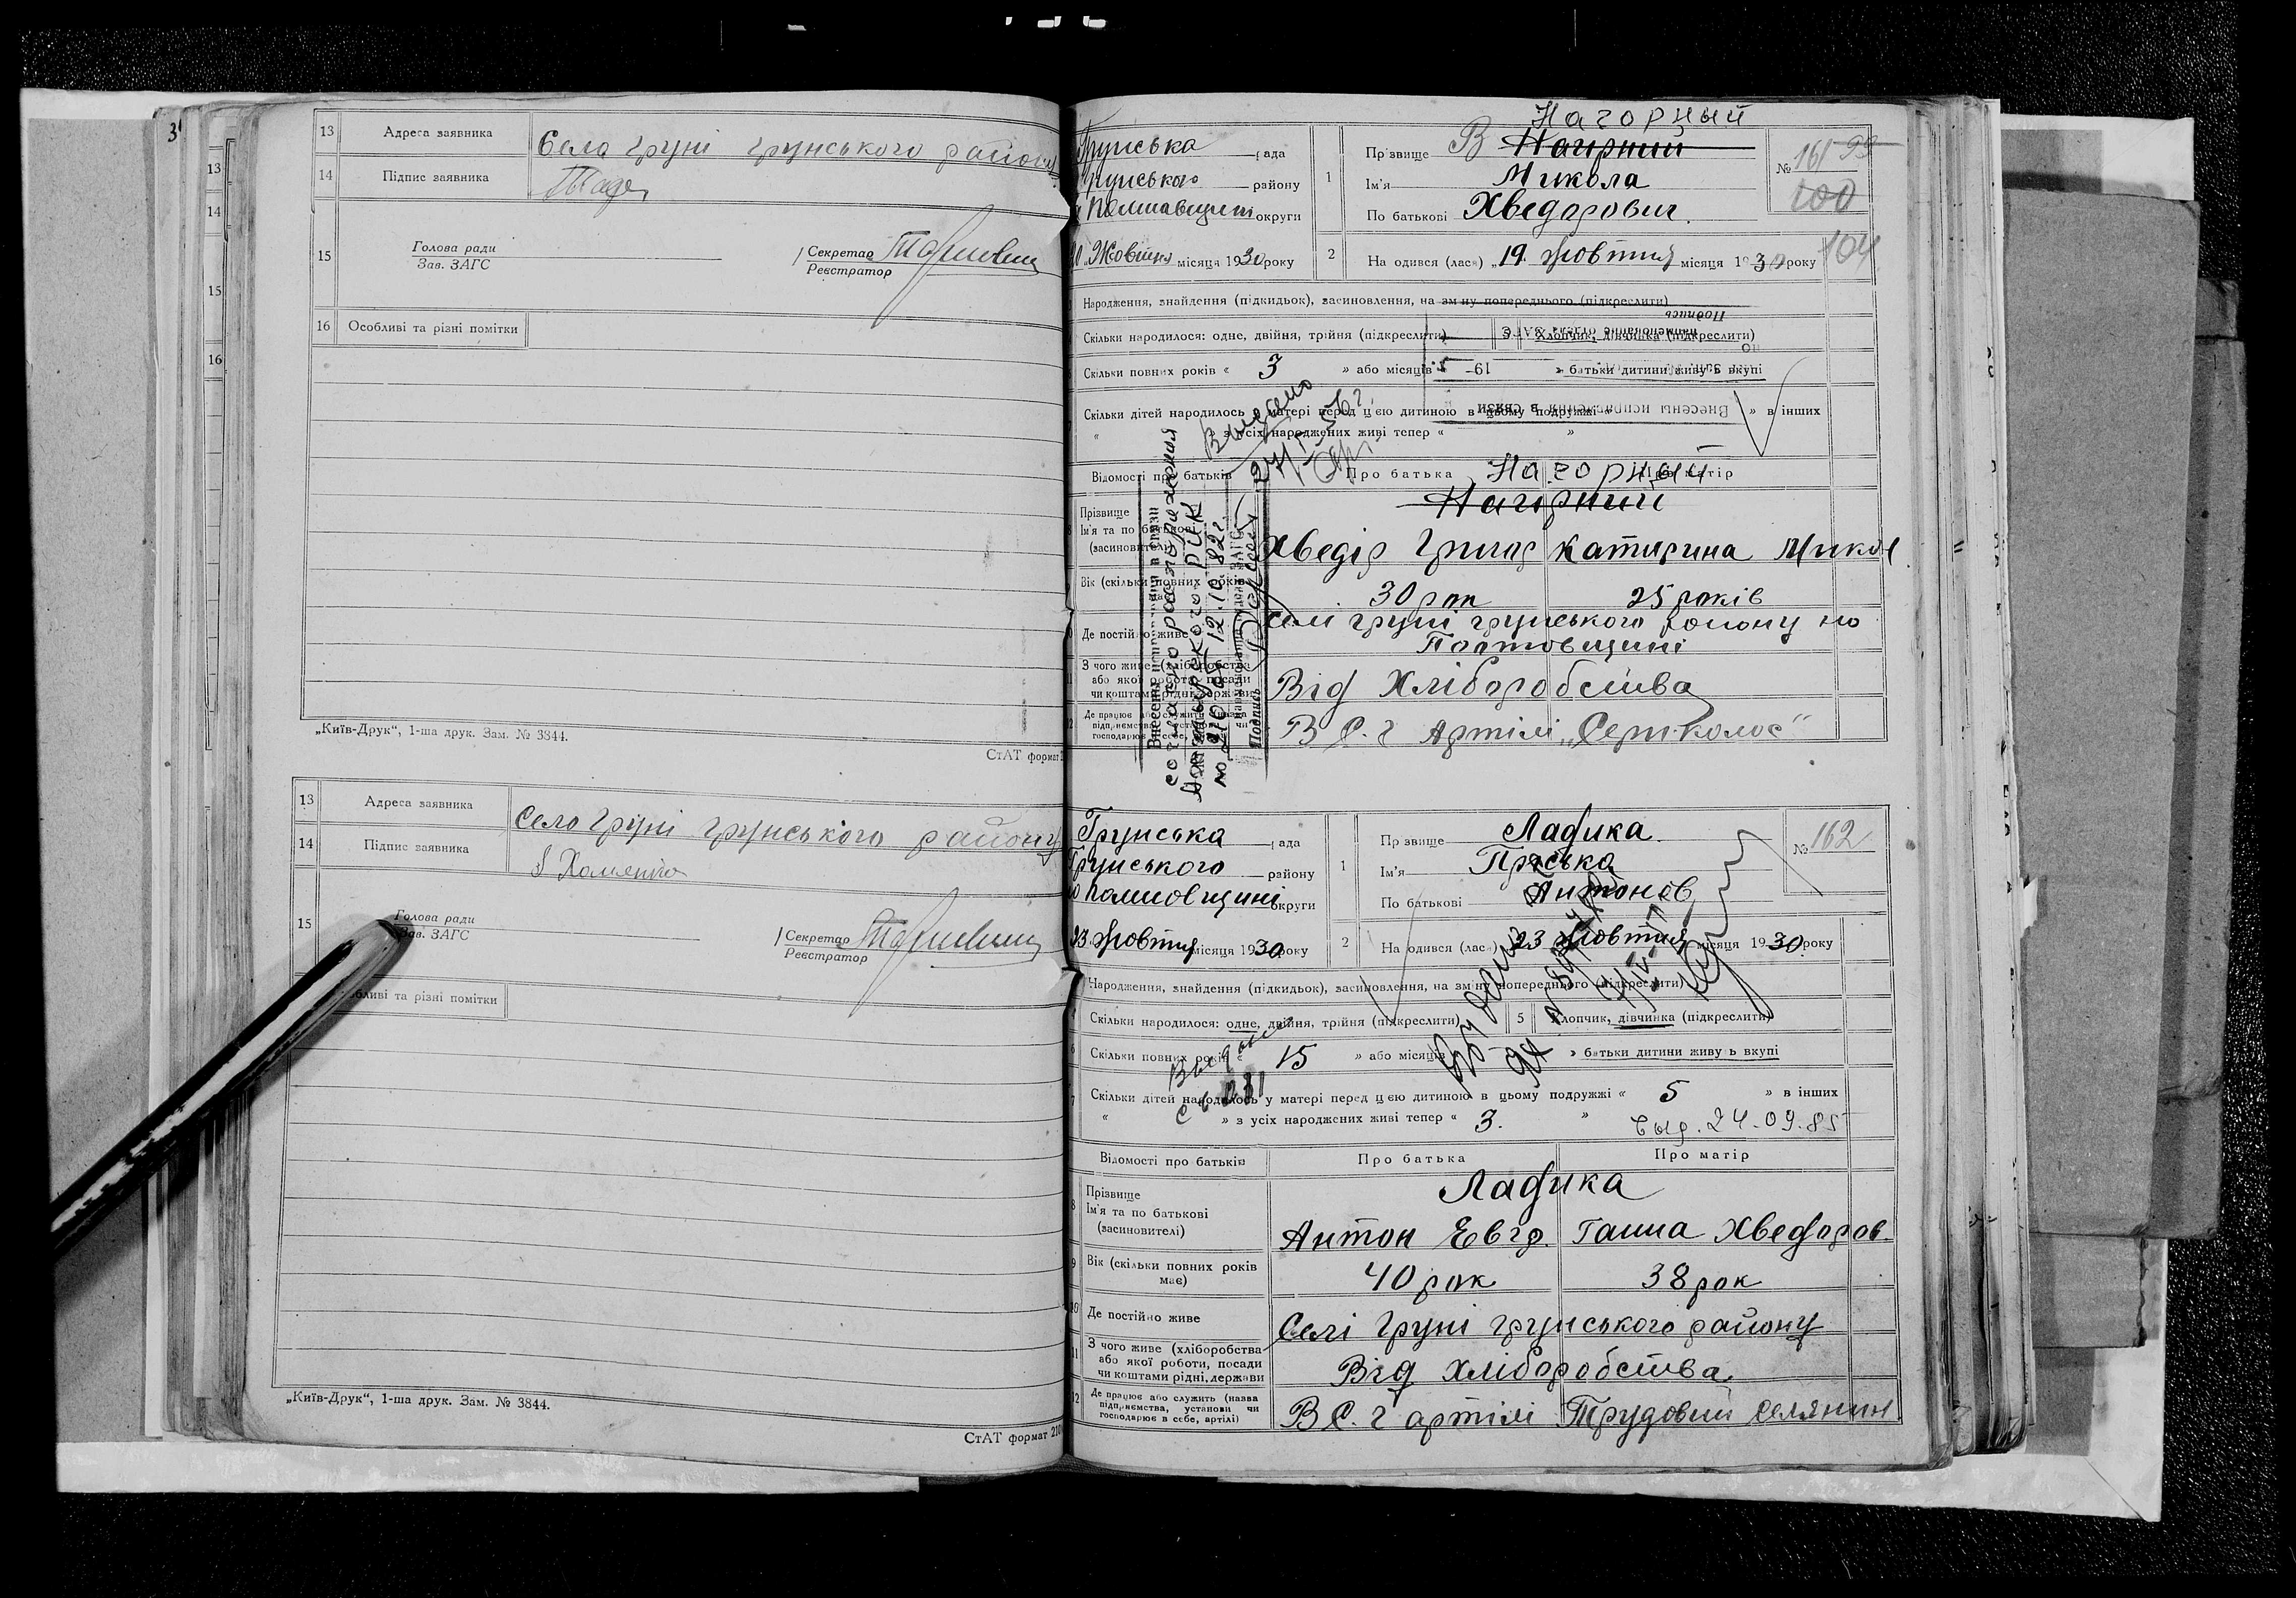 13 Адреса заявника Село Груні Грунського району
14 Підпис заявника
15 Голова ради
Зав. ЗАГС
Секретар
Реєстратор
16 Особливі та різні помітки
„Київ-Друк“, 1-ша друк. Зам. № 3844.
СтАТ формат
13 Адреса заявника Село Груні Грунського району
14 Підпис заявника
15 Голова ради
Зав. ЗАГС
Секретар
Реєстратор
різні помітки
„Київ-Друк“, 1-ша друк. Зам. № 3844.
СтАТ формат 210
Нагорный
Грунська рада
1 Прізвище Нагірний
№ 161 99
100
104
Грунського району
Ім'я Микола
округи
По батькові Хведорович
Жовтня місяця 1930 року
2 На одився (лась) „19 жовтня місяця 1930 року
Народження, знайдення (підкидьок), засиновлення, на зміну попереднього (підкреслити)
Скільки народилося: одне, двійня, трійня (підкреслити) Хлопчик, дівчинка (підкреслити)
Скільки повних років « 3 » або місяців » батьки дитини живуть вкупі
Скільки дітей народилось у матері перед цією дитиною в цьому подружжі » в інших
« » з усіх народжених живі тепер « »
Внесены исправления в связи
Подпись
Внесены в связи
согласно распоряжения
РИК
№ 210 от 12.10.82 г
Подпись
Відомості про батьків Про батька матір
Нагорный
Прізвище Нагірний
Ім'я та по батькові
(засиновителі)
Хведір Григор Катирина Микол
Вік (скільки повних років
30 рок 25 років
Де постійно живе Селі Груні Грунського району на
Полтовщині
З чого живе (хліборобства
або якої роботи, посади
чи коштами рідні, держави
Від Хліборобства
В С. г Артілі „Серп колос“
Грунська рада
1 Прізвище Ладика
№ 162
Грунського району
Ім'я Пріська
округи
По батькові Антонов
23 жовтня місяця 1930 року
2 На одився (лась) 23 жовтня місяця 1930 року
Народження, знайдення (підкидьок), засиновлення, на зміну попереднього (підкреслити)
Скільки народилося: одне, двійня, трійня (підкреслити) 5 Хлопчик, дівчинка (підкреслити)
Скільки повних років « 15 » або місяців » батьки дитини живуть вкупі
Скільки дітей народилось у матері перед цією дитиною в цьому подружжі « 5 » в інших
« » з усіх народжених живі тепер « 3. »
выд. 24-09-85
Відомості про батьків Про батька Про матір
8 Прізвище Ладика
Ім'я та по батькові
(засиновителі)
Антон Евгр. Ганна Хведоров.
9 Вік (скільки повних років
має)
40 рок 38 рок
10 Де постійно живе Селі Груні Грунського району
11 З чого живе (хліборобства
або якої роботи, посади
чи коштами рідні, держави
Від хліборобства
12 Де працює або служить (назва
підприємства, установи чи
господарює в себе, артілі)
В С. г артілі Трудовий Селянин